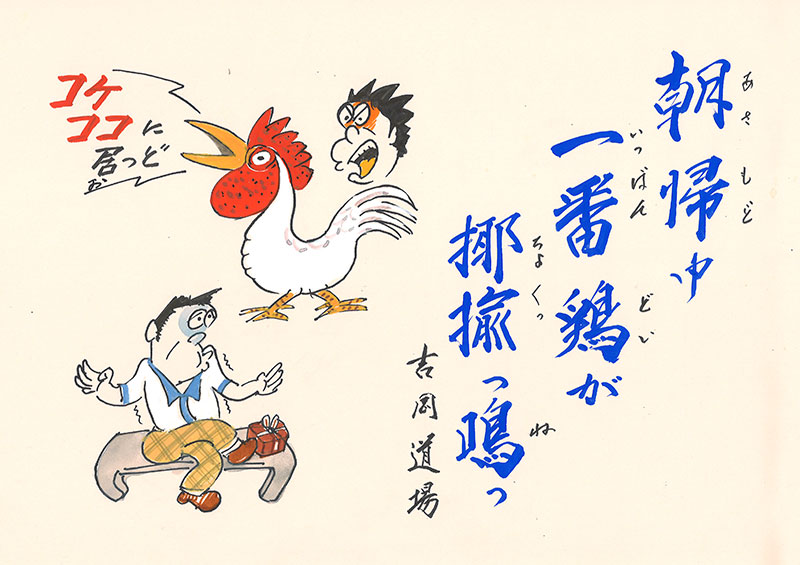 あさ もど
朝帰ゆ
いっばん どい
一番鶏が
ちょくっ ね
揶揄っ鳴っ
吉岡道場
コケ
ココに
居っど
お